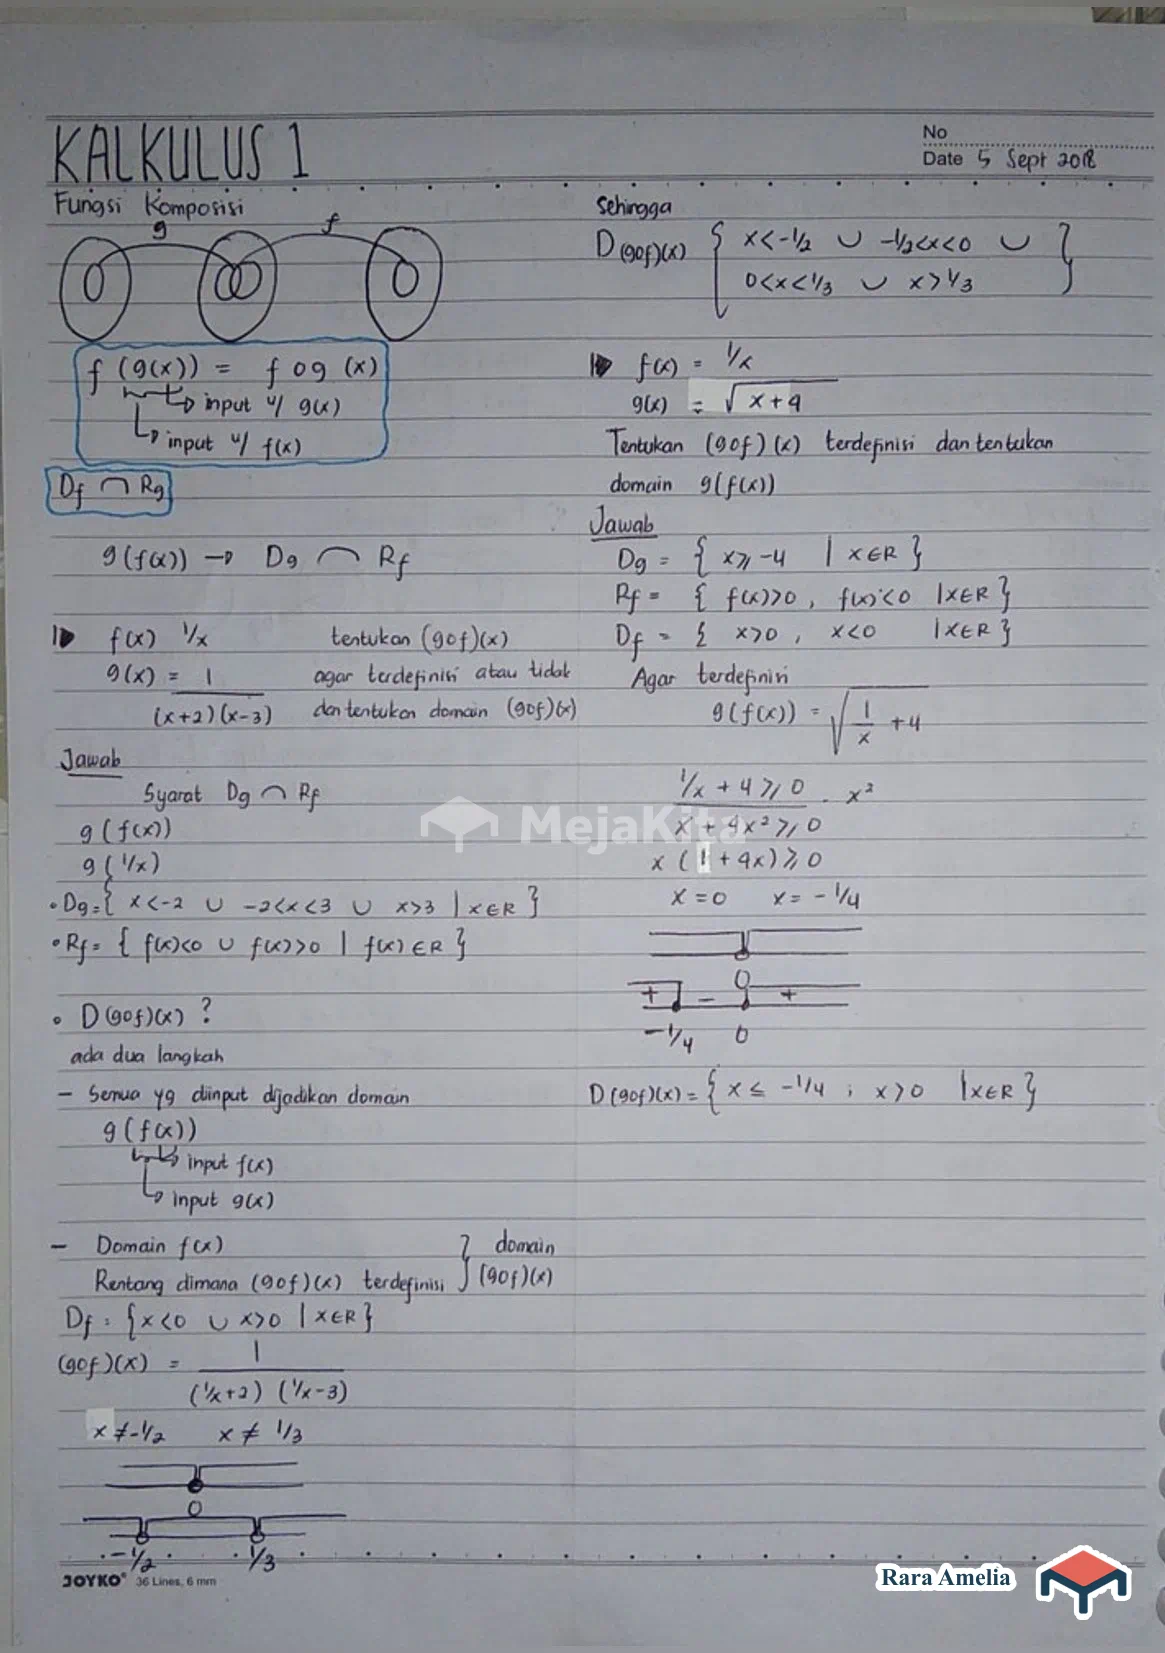 KALKULUS 1
No
Date 5 Sept 2018
Fungsi Komposisi
g f
f (g(x)) = f o g (x)
input u/ g(x)
input u/ f(x)
Df ∩ Rg
g(f(x)) → Dg ∩ Rf
f(x) 1/x tentukan (gof)(x)
g(x) = 1 agar terdefinisi atau tidak
(x+2)(x-3) dan tentukan domain (gof)(x)
Jawab
Syarat Dg ∩ Rf
g(f(x))
g(1/x)
• Dg = { x<-2 ∪ -2<x<3 ∪ x>3 | x∈R }
• Rf = { f(x)<0 ∪ f(x)>0 | f(x)∈R }
• D(gof)(x) ?
ada dua langkah
- Semua yg diinput dijadikan domain
g(f(x))
input f(x)
input g(x)
- Domain f(x) } domain
Rentang dimana (gof)(x) terdefinisi } (gof)(x)
Df : {x<0 ∪ x>0 | x∈R}
(gof)(x) = 1
(1/x+2) (1/x-3)
x ≠ -1/2 x ≠ 1/3
0
-1/2 1/3
JOYKO® 36 Lines, 6 mm
Sehingga
D(gof)(x) { x<-1/2 ∪ -1/2<x<0 ∪ }
0<x<1/3 ∪ x>1/3
f(x) = 1/x
g(x) = √x+4
Tentukan (gof)(x) terdefinisi dan tentukan
domain g(f(x))
Jawab
Dg = { x≥-4 | x∈R }
Rf = { f(x)>0, f(x)<0 | x∈R }
Df = { x>0, x<0 | x∈R }
Agar terdefinisi
g(f(x)) = √1/x +4
1/x + 4 ≥ 0 . x²
x + 4x² ≥ 0
x (1 + 4x) ≥ 0
x = 0 x = -1/4
0
+ - +
-1/4 0
D(gof)(x) = { x ≤ -1/4 ; x>0 | x∈R }
MejaKita
Rara Amelia